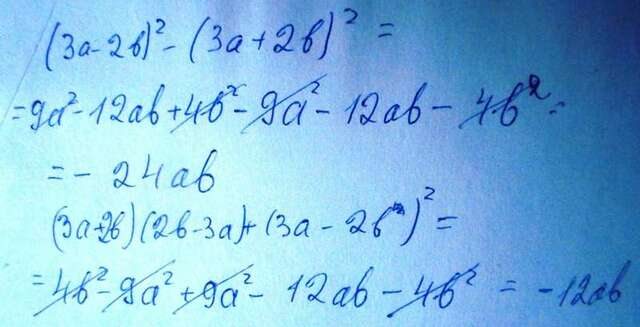 (3a-2b)² - (3a+2b)² =
=9a²-12ab+4b²-9a²-12ab-4b²=
=-24ab
(3a+2b)(2b-3a)+(3a-2b)²=
=4b²-9a²+9a²-12ab-4b²=-12ab